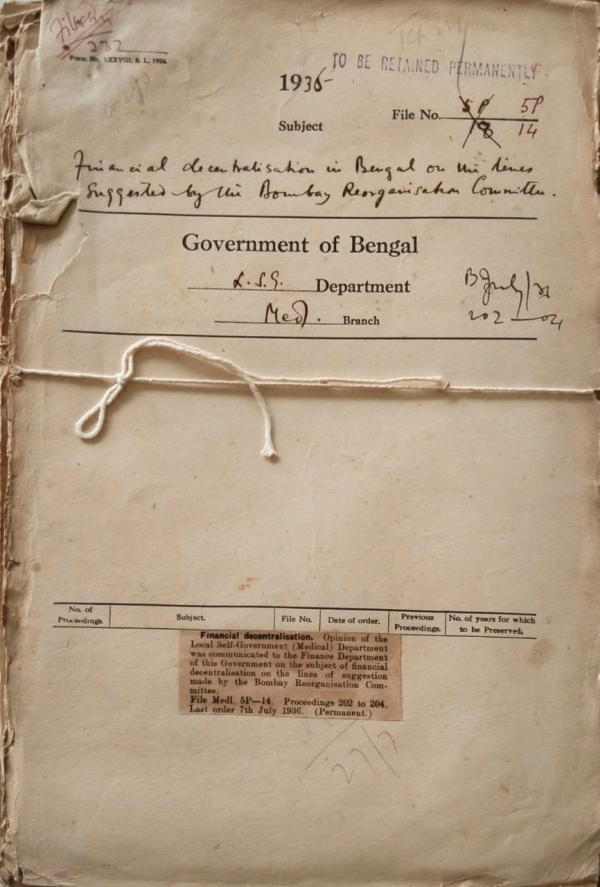 Filed
332
Form No. XXXVIII, S. I., 1924.
TO BE RETAINED PERMANENTLY
1935
File No. 5P 5P
18 14
Subject
Financial decentralisation in Bengal on the lines
Suggested by the Bombay Reorganisation Committee.
Government of Bengal
L.S.G. Department
Med. Branch
B July/36
202-04
No. of Proceedings. Subject. File No. Date of order. Previous Proceedings. No. of years for which to be Preserved.
Financial decentralisation. Opinion of the
Local Self-Government (Medical) Department
was communicated to the Finance Department
of this Government on the subject of financial
decentralisation on the lines of suggestion
made by the Bombay Reorganisation Com-
mittee.
File Medl. 5P—14. Proceedings 202 to 204.
Last order 7th July 1936. (Permanent.)
27/7